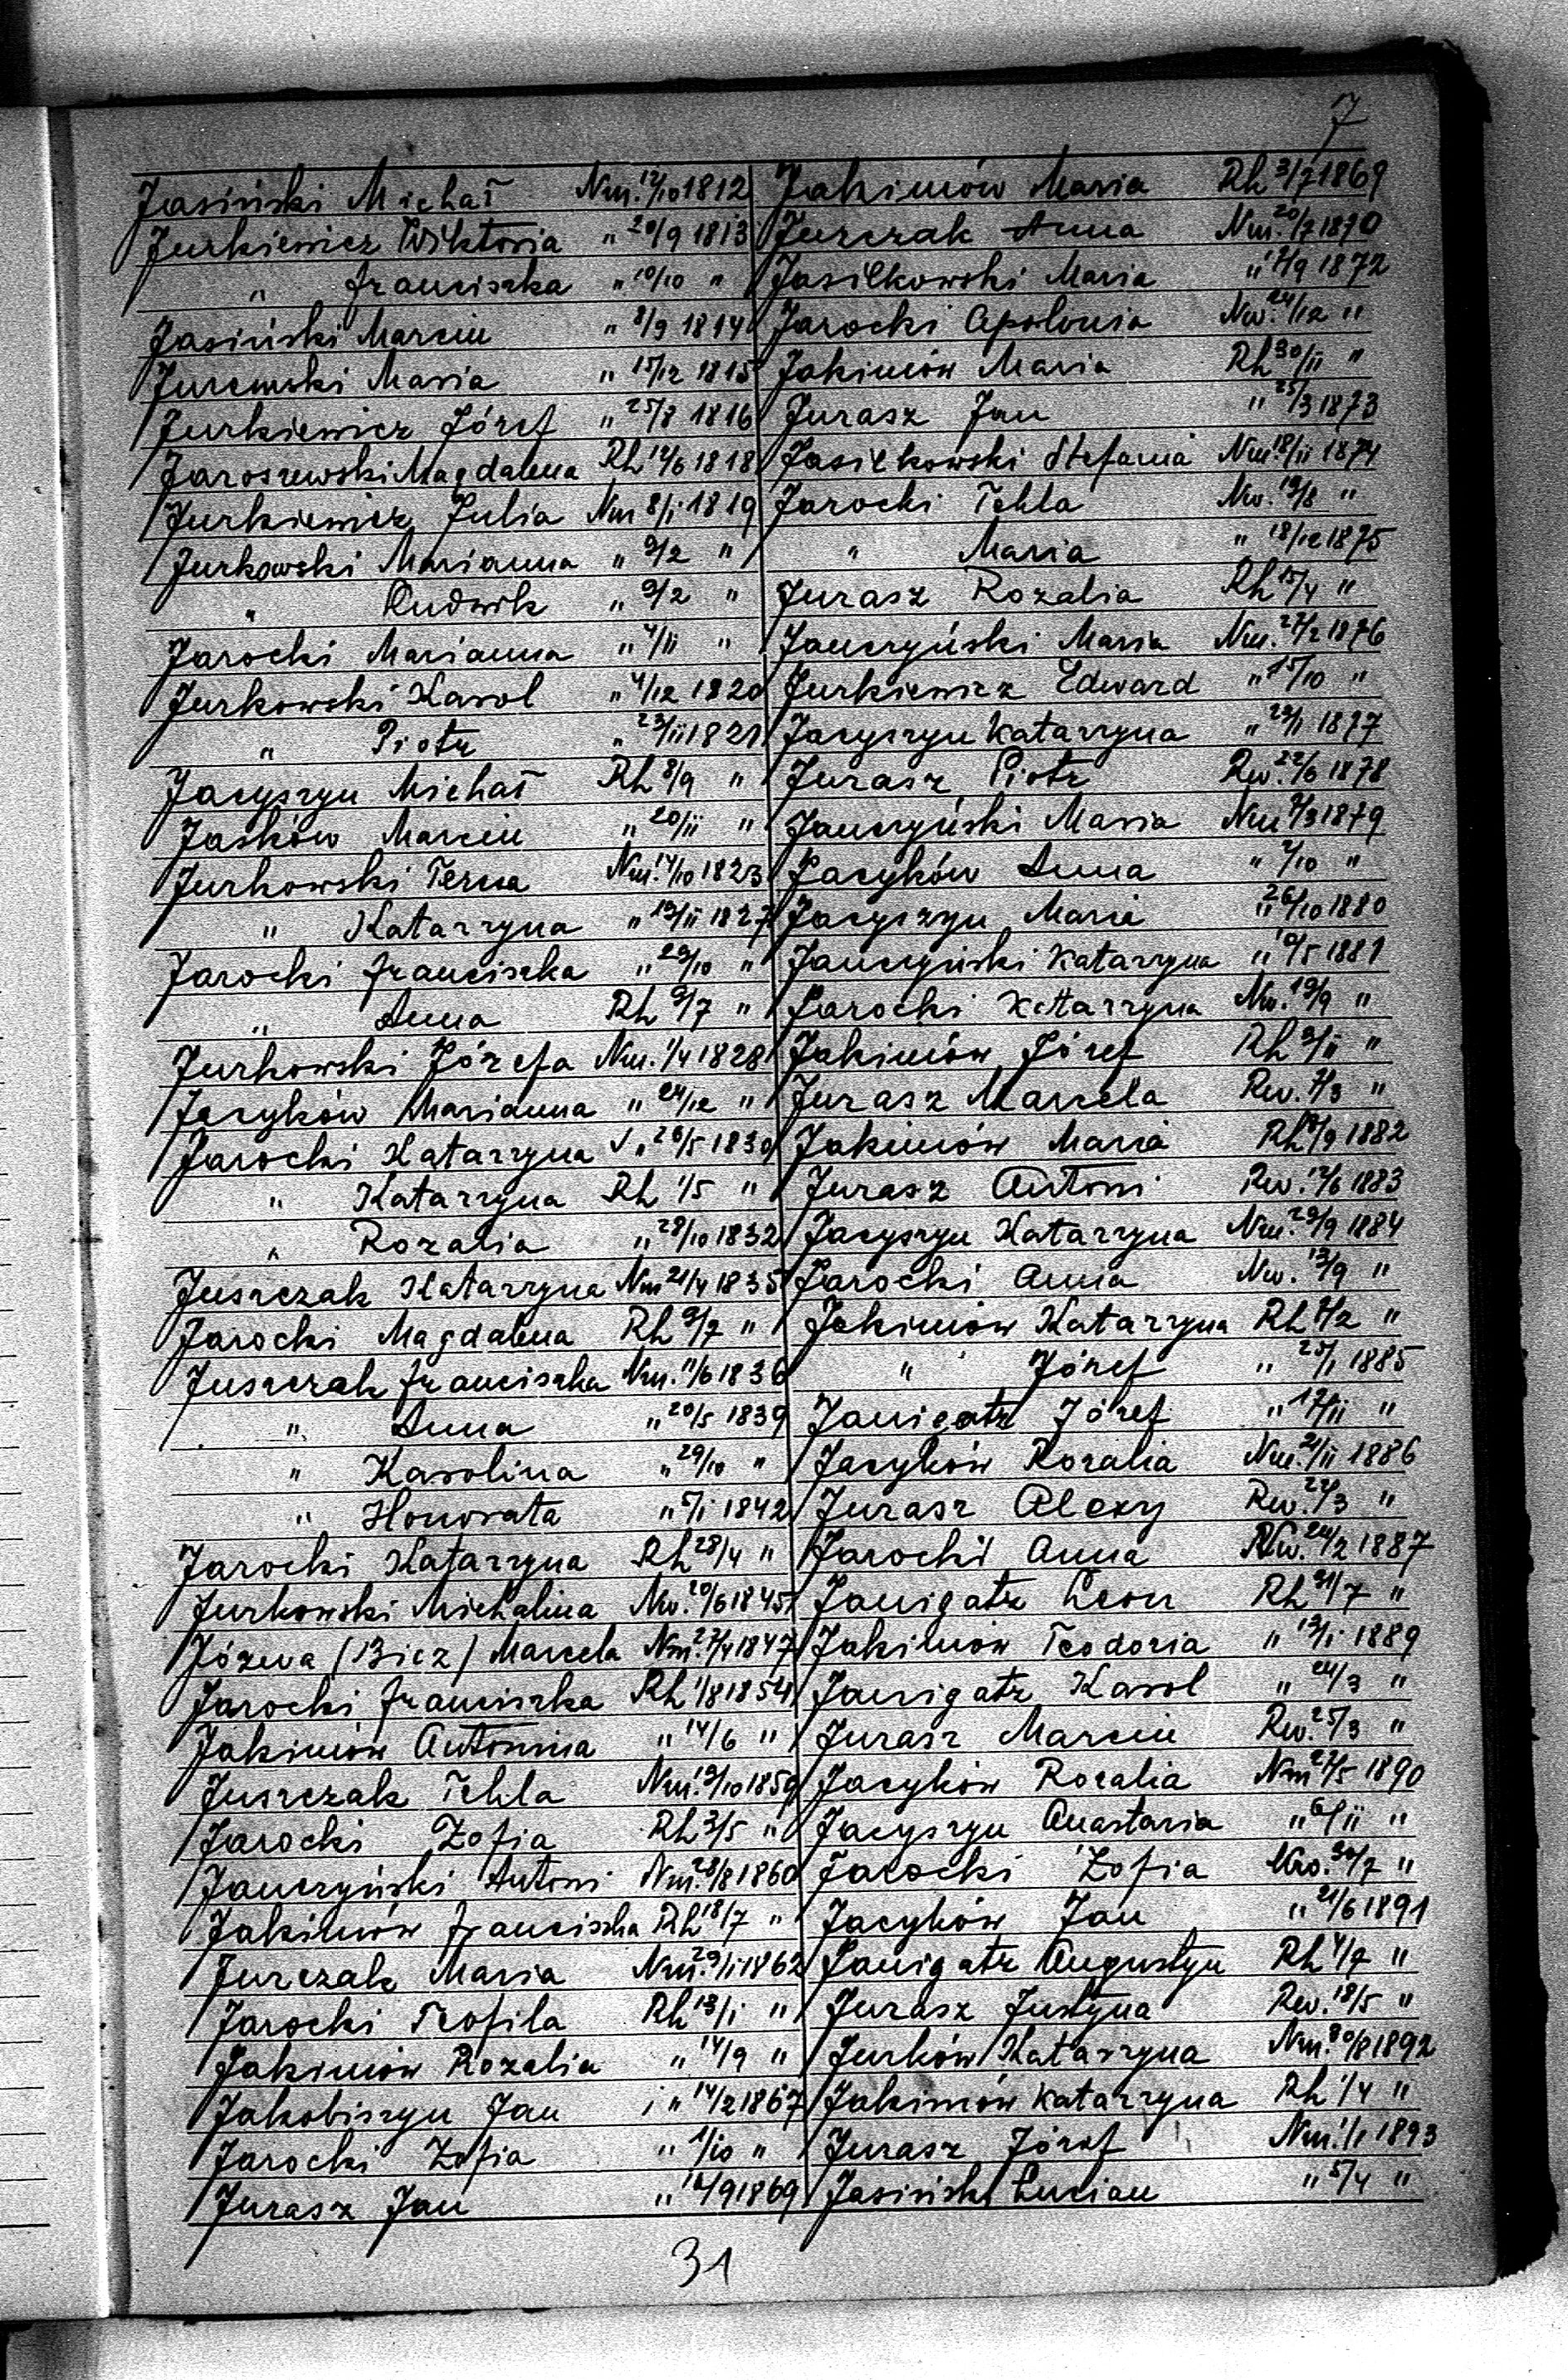 7
Jasiński Michał Nm. 12/10 1812
Jurkiewicz Wiktoria " 20/9 1813
" Franciszka " 10/10 "
Jasiński Marcin " 8/9 1814
Juremski Maria " 15/12 1815
Jurkiewicz Józef " 25/8 1816
Jaroszewski Magdalena Rh 12/6 1818
Jurkiewicz Julia Nm 8/i 1819
Jurkowski Marianna " 9/2 "
" Ludwik " 9/2 "
Jarocki Marianna " 4/ii "
Jurkowski Karol " 4/12 1820
" Piotr " 23/ii 1821
Jacyszyn Michał Rh 8/9 "
Jasków Marcin " 20/ii "
Jurkowski Teresa Nm. 14/10 1823
" Katarzyna " 19/ii 1827
Jarocki Franciszka " 29/10 "
" Anna Rh 9/7 "
Jurkowski Józefa Nm. 1/4 1828
Jacyków Marianna " 24/12 "
Jarocki Katarzyna " 26/5 1830
" Katarzyna Rh 1/5 "
" Rozalia " 28/10 1832
Juszczak Katarzyna Nm 21/4 1835
Jarocki Magdalena Rh 9/7 "
Juszczak Franciszka Nm. 11/6 1836
" Anna " 20/5 1839
" Karolina " 29/10 "
" Honorata " 5/i 1842
Jarocki Katarzyna Rh 28/4 "
Jurkowski Michalina Nw. 20/6 1845
Józewa (Bicz) Marcela Nm. 27/4 1847
Jarocki Franciszka Rh 1/8 1854
Jakimów Antonina " 14/6 "
Juszczak Tekla Nm. 19/10 1859
Jarocki Zofia Rh 3/5 "
Janczyński Antoni Nm. 28/8 1860
Jakimów Franciszka Rh 18/7 "
Jurczak Maria Nm. 29/i 1862
Jarocki Teofila Rh 13/i "
Jakimów Rozalia " 14/9 "
Jakobiszyn Jan " 14/2 1867
Jarocki Zofia " 1/10 "
Jurasz Jan " 14/9 1869
Jakimów Maria Rh 3/7 1869
Jurczak Anna Nm. 20/7 1870
Jasilkowski Maria " 17/9 1872
Jarocki Apolonia Nw. 24/12 "
Jakimów Maria Rh 30/ii "
Jurasz Jan " 25/3 1873
Jasilkowski Stefania Nm. 18/ii 1874
Jarocki Tekla Nw. 19/8 "
" Maria " 18/12 1875
Jurasz Rozalia Rh 15/4 "
Janczyński Maria Nm. 27/2 1876
Jurkiewicz Edward " 15/10 "
Jacyszyn Katarzyna " 23/1 1877
Jurasz Piotr Rw. 22/6 1878
Janczyński Maria Nm 7/3 1879
Jacyków Anna " 7/10 "
Jacyszyn Maria " 26/10 1880
Janczyński Katarzyna " 10/5 1881
Jarocki Katarzyna Nw. 19/9 "
Jakimów Józef Rh 3/ii "
Jurasz Marcela Rw. 7/3 "
Jakimów Maria Rh 8/9 1882
Jurasz Antoni Rw. 12/6 1883
Jacyszyn Katarzyna Nm. 29/9 1884
Jarocki Anna Nw. 13/9 "
Jakimów Katarzyna Rh 7/2 "
" Józef " 25/1 1885
Janigatz Józef " 17/ii "
Jacyków Rozalia Nm. 21/ii 1886
Jurasz Alexy Rw. 27/3 "
Jarocki Anna Nw. 24/2 1887
Janigatz Leon Rh 31/7 "
Jakimów Teodoria " 13/i 1889
Janigatz Karol " 24/3 "
Jurasz Marcin Rw. 25/3 "
Jacyków Rozalia Nm 27/5 1890
Jacyszyn Anastazia " 6/ii "
Jarocki Zofia Nw. 30/7 "
Jacyków Jan " 21/6 1891
Janigatz Augustyn Rh 4/7 "
Jurasz Justyna Rw. 18/5 "
Jurków Katarzyna Nm. 30/8 1892
Jakimów Katarzyna Rh 1/4 "
Jurasz Józef Nm. 1/1 1893
Jasiński Lucian " 5/4 "
31